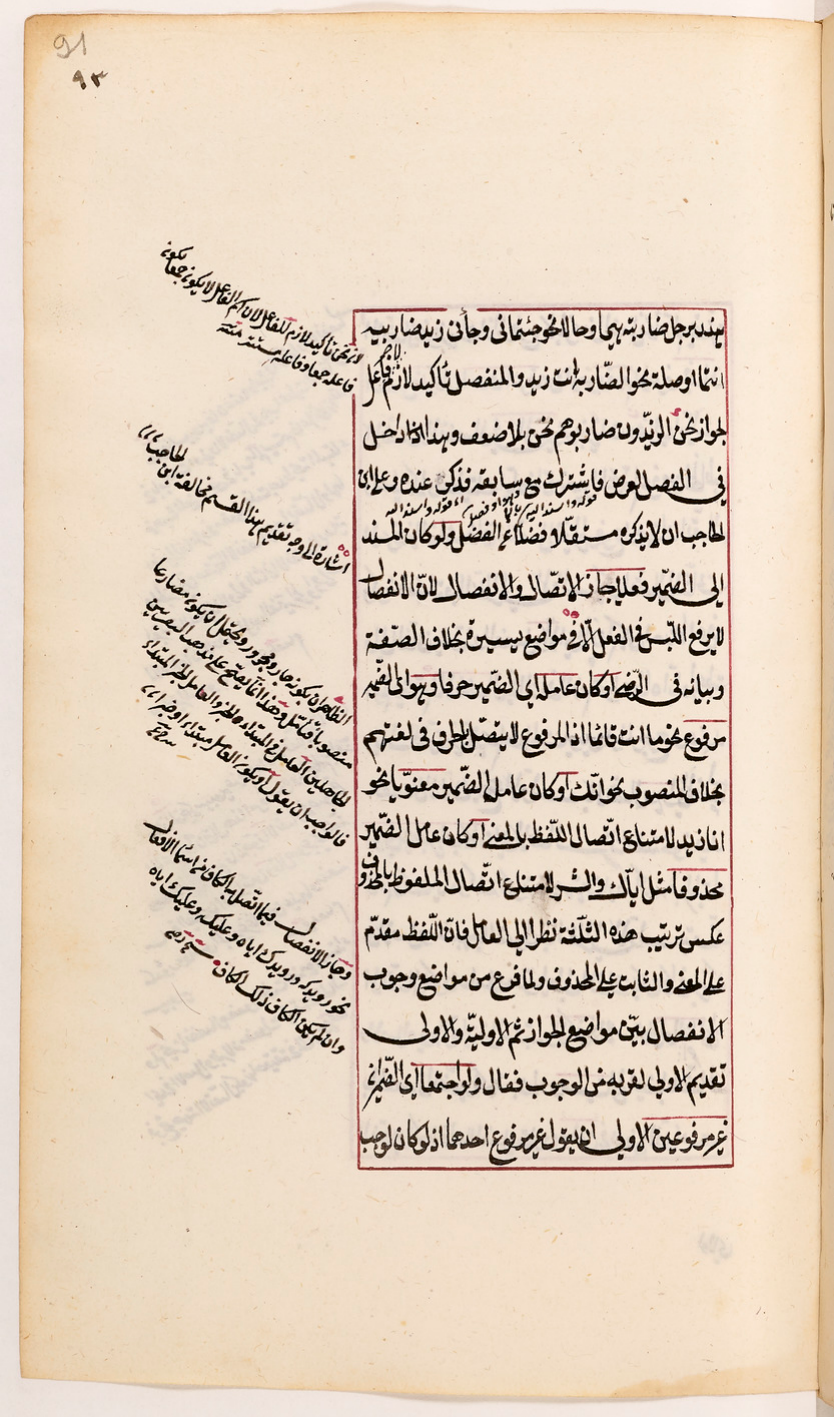 91
٩٣
هند برجل ضاربته هيما وحالا نحو جئتماني وجاءني زيد ضاربيه
انتما اوصلة نحو الضاربه انت زيد والمنفصل تأكيد لازم فاعل
لجواز نحن الزيدون ضاربوهم نحن بلا ضعف وهذا داخل
في الفصل لغرض فاشترك مع سابقه فذكر عنده وعلى ابن
الحاجب ان لا يذكره مستقلا فضلا عن الفصل ولو كان المسند
الى الضمير فعلا جاز الاتصال والانفصال لان الانفصال
لا يرفع اللبس في الفعل الا في مواضع يسيرة بخلاف الصفة
وبيانه في الرضي او كان عامله اي الضمير حرفا وهو اي الضمير
مرفوع نحو ما انت قائما اذ المرفوع لا يتصل بالحرف في لغتهم
بخلاف المنصوب نحو انك او كان عامل الضمير معنويا نحو
انا زيد لامتناع اتصال اللفظ بالمعنى او كان عامل الضمير
محذوفا مثل اياك والشر لامتناع اتصال الملفوظ بالمحذوف
عكس ترتيب هذه الثلثة نظرا الى العامل فان اللفظ مقدم
على المعنى والثابت على المحذوف ولما فرغ من مواضع وجوب
الانفصال بين مواضع الجواز ثم الاولية والاولى
تقديم الاولى لقربه من الوجوب فقال ولو اجتمعا اي الضميران
غير مرفوعين الاولى ان يقول غير مرفوع احدهما اذ لو كان لوجب
لان نحن تأكيد لازم للفاعل لان اسم الفاعل لا يكون جمعا بكون
فاعله جمعا وفاعله مستتر منه
اشارة الى وجه تقديم هذا القسم مخالفة ابن
الحاجب
الظاهر ان يكون جار ومجرور ويحتمل ان يكون مضارعا
منصوبا فتأمل وهذا انما يصح على مذهب البصريين
الجاعلين العامل في المبتداء والخبر والعامل الخبر المبتداء
فالواجب ان يقول او يكون العامل مبتداء او خبرا
وجاز الانفصال فيما اتصل به الكاف من اسماء الافعال
نحو رويدكه ورويدك اياه وعليكه وعليك اياه
وان لم يكن الكاف ذلك الكاف